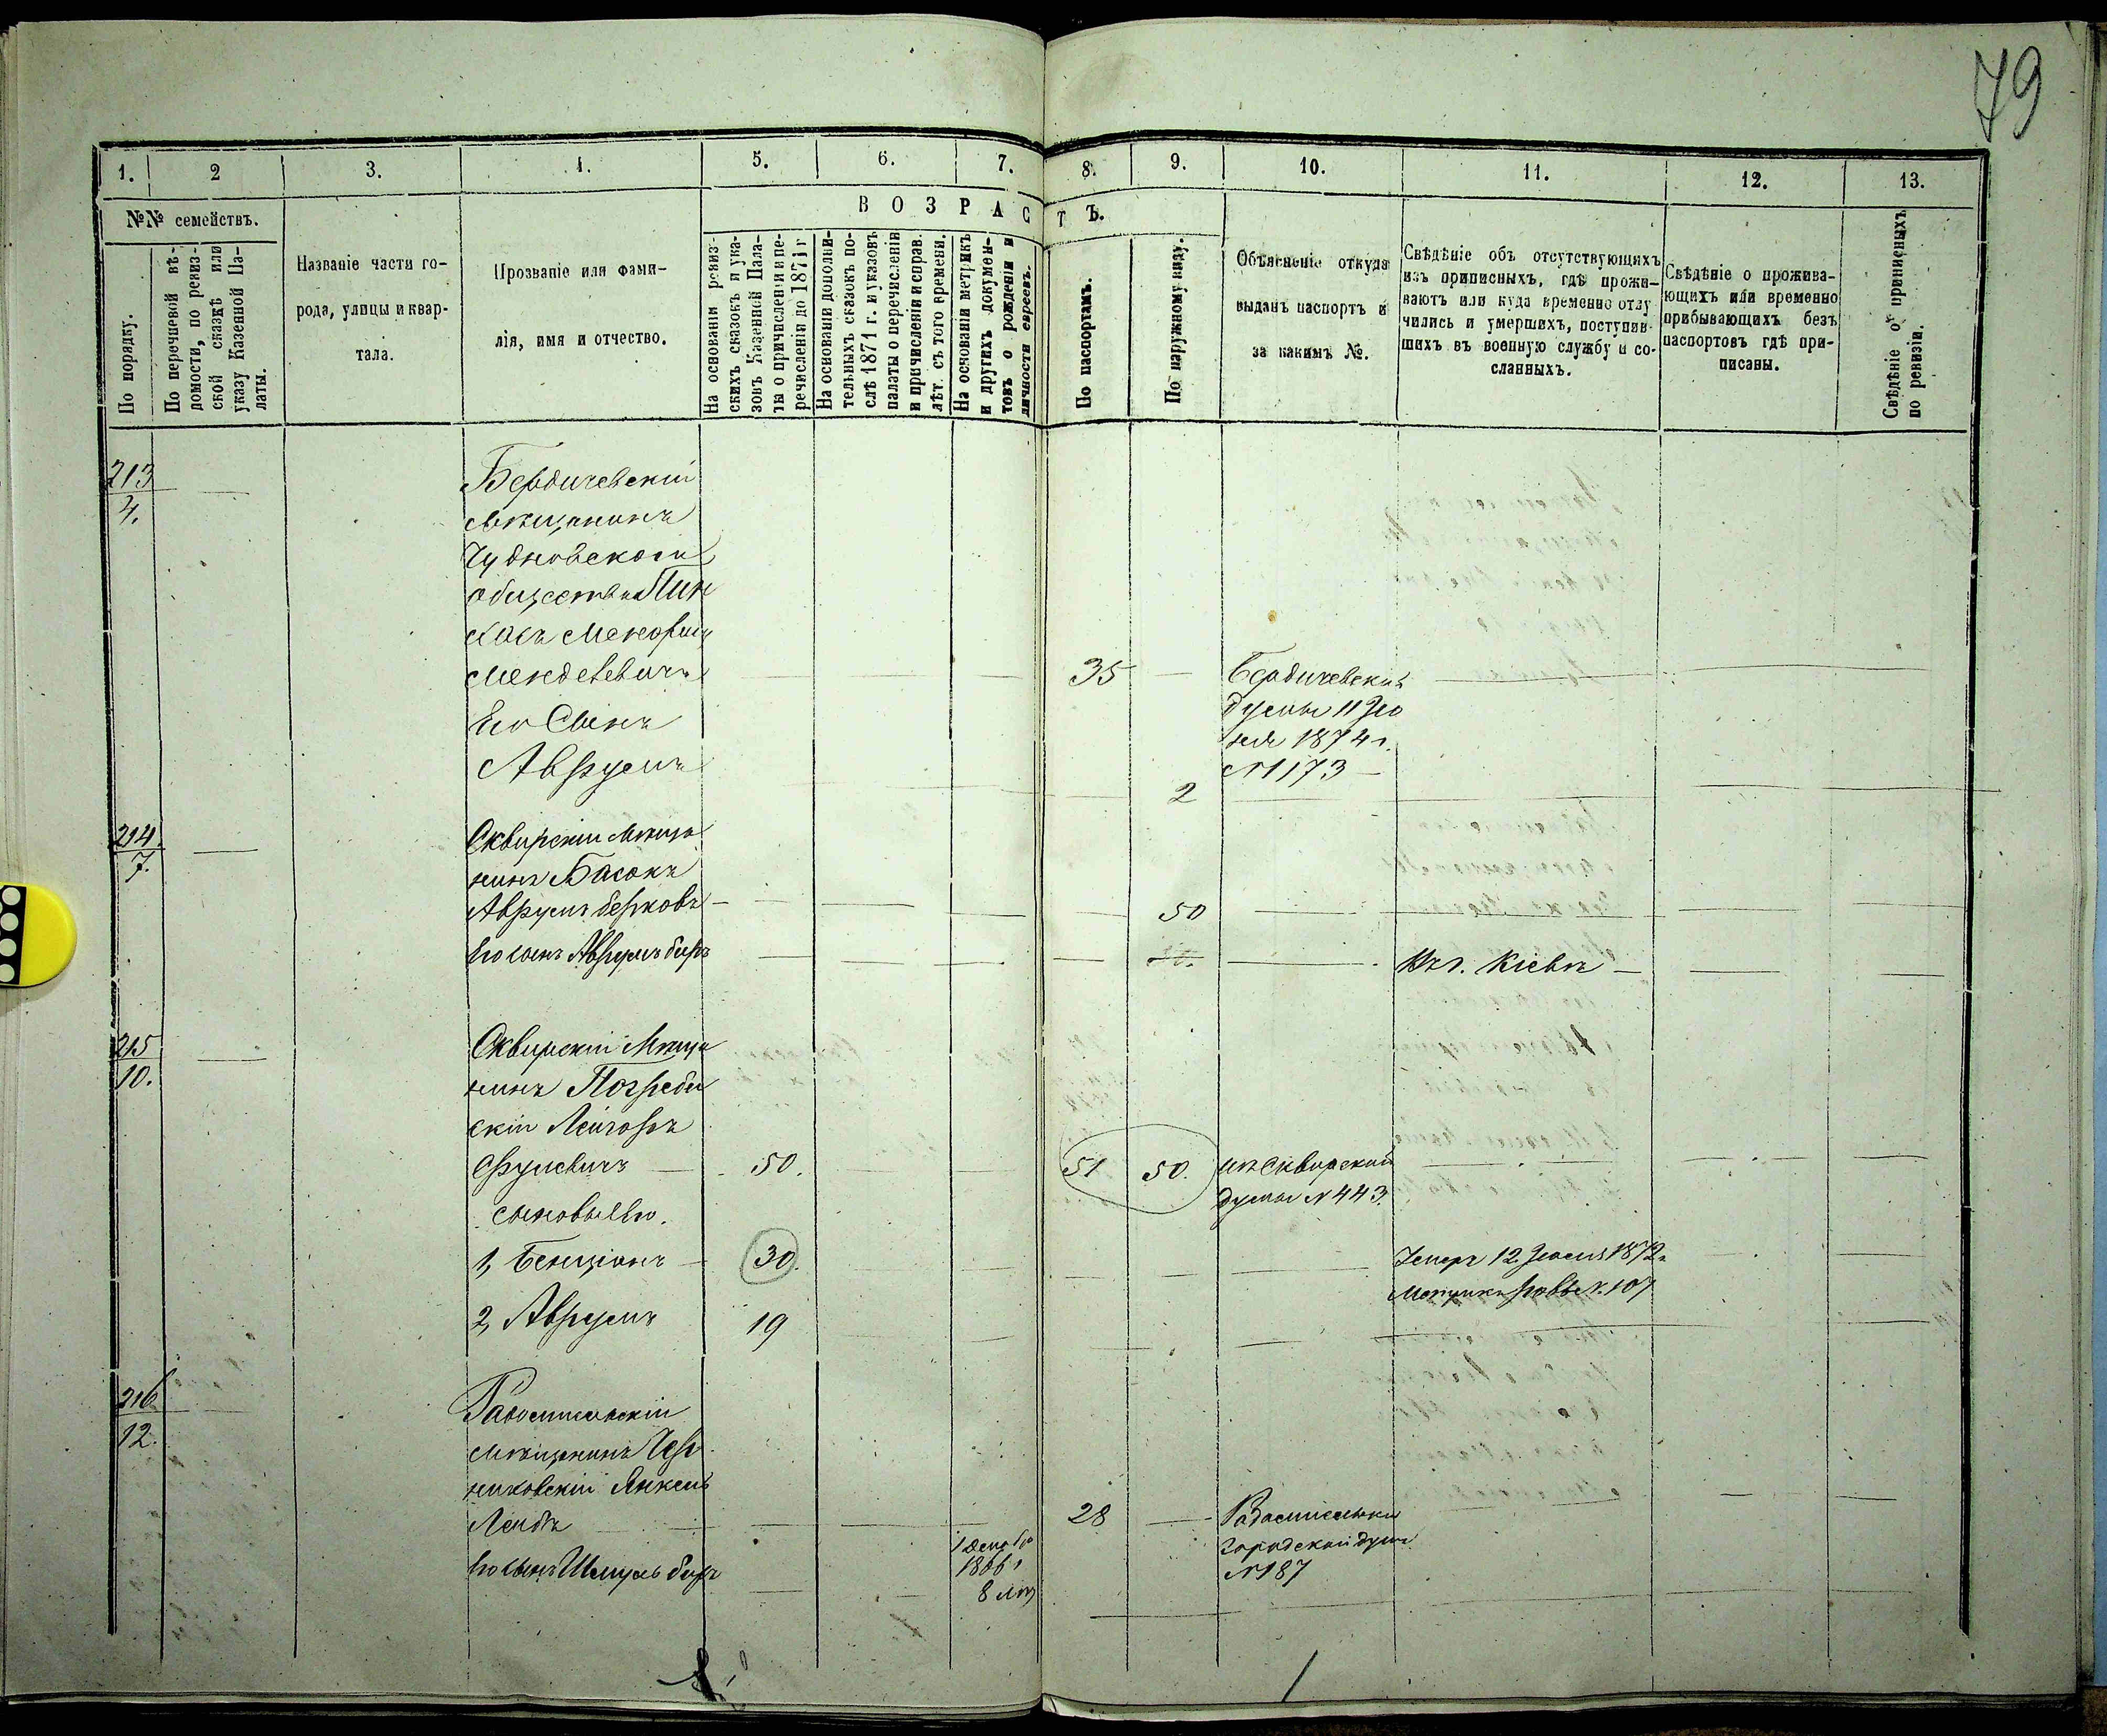 79
1. 2 3. 4. 5. 6. 7. 8. 9. 10. 11. 12. 13.
№№ семействъ.
По порядку.
По перечневой вѣ-
домости, по ревиз-
ской сказкѣ или
указу Казенной Па-
латы.
Названіе части го-
рода, улицы и квар-
тала.
Прозваніе или фами-
лія, имя и отчество.
ВОЗРАСТЪ.
На основаніи ревиз-
скихъ сказокъ и ука-
зокъ Казенней Пала-
ты о причисленіи и пе-
речисленіи до 1871 г
На основаніи дополни-
тельныхъ сказокъ по-
слѣ 1871 г. и указовъ
палаты о перечисленіи
и причисленіи и справ.
лѣт. съ того времени.
На основаніи метрикъ
и другихъ докумен-
товъ о рожденіи и
личности евреевъ.
По паспортамъ.
По наружному виду.
Объясненіе откуда
выданъ паспортъ и
за какимъ №.
Свѣдѣніе объ отсутствующихъ
изъ приписныхъ, гдѣ прожи-
ваютъ или куда временно отлу
чились и умершихъ, поступив-
шихъ въ военную службу и со-
сланныхъ.
Свѣдѣніе о прожива-
ющихъ или временно
прибывающихъ безъ
паспортовъ гдѣ при-
писаны.
Свѣдѣніе о приписныхъ
по ревизіи.
213
4.
Бердичевскій
мѣщанинъ
Чудновскаго
общества Пин
хасъ
Менделевичъ 35 Бердичевской
Его Сынъ думы 11 Ію
Аврумъ ня 1874 г.
2 №1173
214.
7.
Сквирскій мѣща
нинъ Басокъ
Аврумъ Берковъ 50
Его сынъ Аврумъ Беръ Въ г. Кіевѣ
215
10.
Сквирскій Мѣща
нинъ Погреби
скій Лейзоръ
Срулевичъ 50. 51 50. изъ Сквирской
Сыновья Его. думы №443.
1, Бенціонъ 30. Умеръ 12 1872 г.
2, Аврумъ 19 №. 107
216
12.
Радомысльскій
мѣщанинъ Чер
няховскій Янкель
Лейбъ 28 Радомысльской
городской думы
№187
Его сынъ Шмуль Беръ
1866 г
8 лѣт